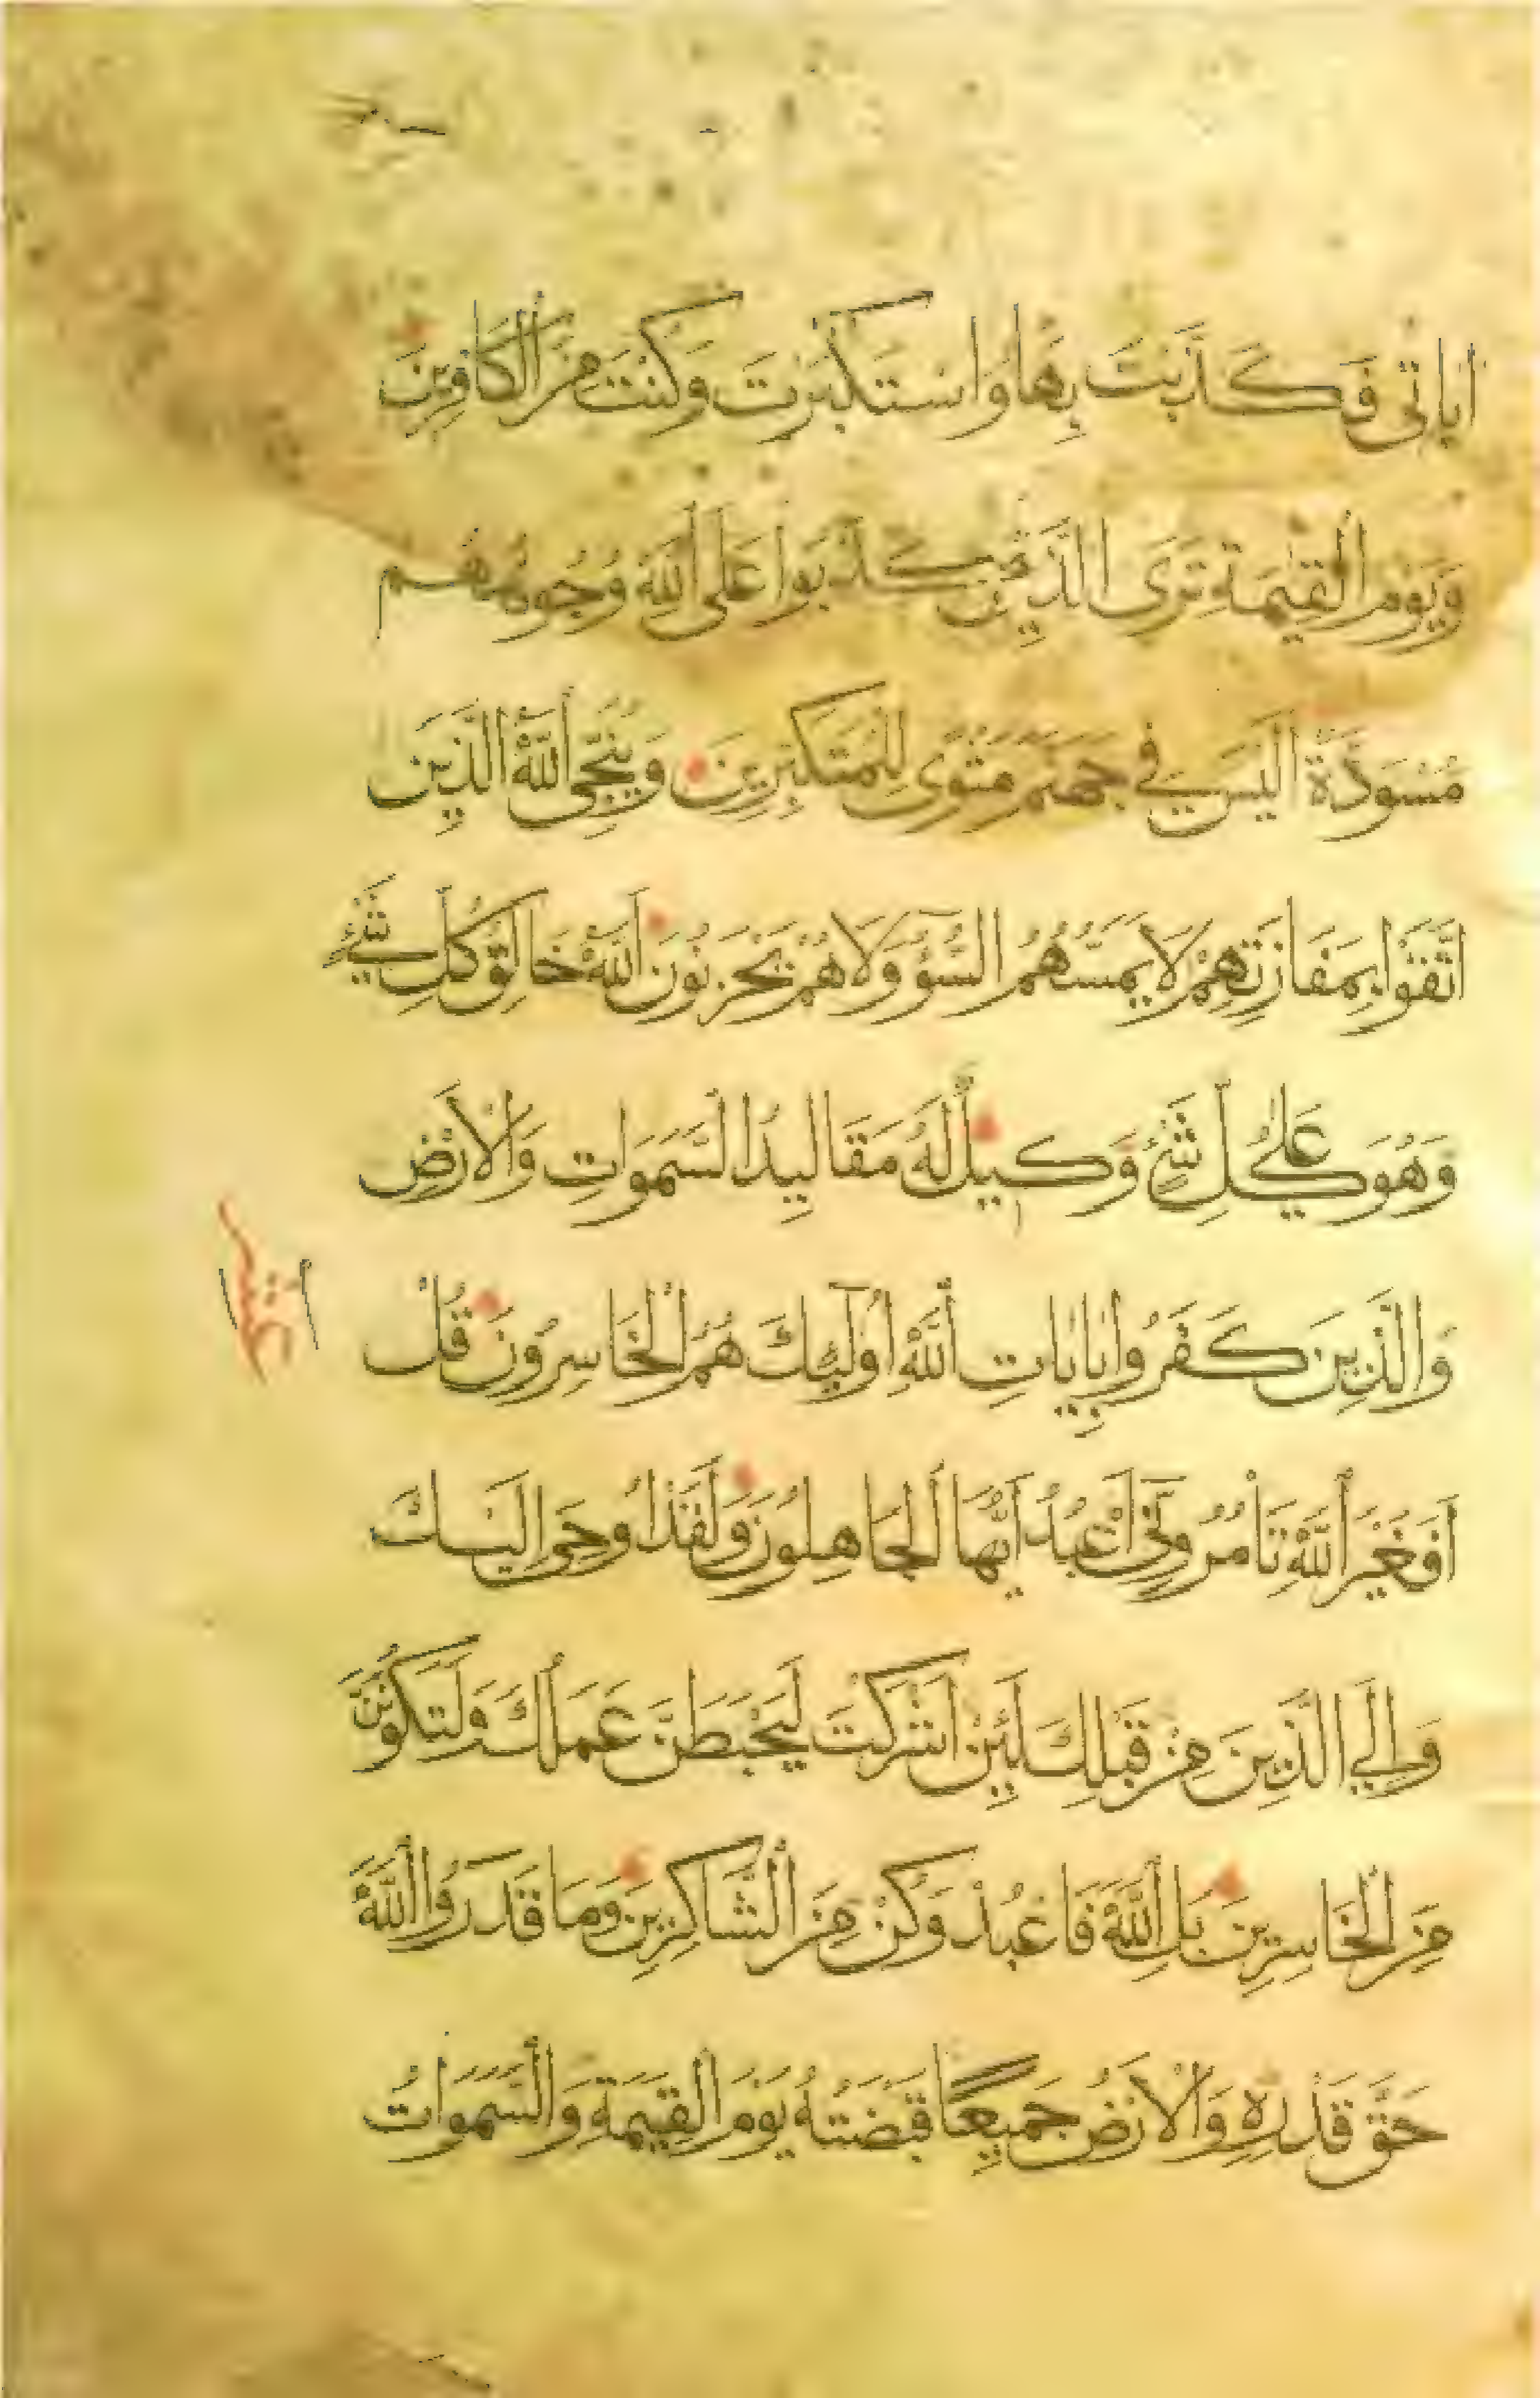 اياتى فَكَذَّبْتَ بِهَا وَاسْتَكْبَرْتَ وَكُنْتَ مِنَ الْكَافِرِينَ
وَيَوْمَ الْقِيمَةِ تَرَى الَّذِينَ كَذَبُوا عَلَى اللَّهِ وُجُوهُهُم
مُسْوَدَّةٌ اَلَيْسَ فِي جَهَنَّمَ مَثْوًى لِلْمُتَكَبِّرِينَ وَيُنَجِّى اللَّهُ الَّذِينَ
اتَّقَوْا بِمَفَازَتِهِمْ لَا يَمَسُّهُمُ السُّوءُ وَلَا هُمْ يَحْزَنُونَ اَللَّهُ خَالِقُ كُلِّ شَيْءٍ
وَهُوَ عَلَى كُلِّ شَيْءٍ وَكِيلٌ لَهُ مَقَالِيدُ السَّمَوَاتِ وَالْاَرْضِ
وَالَّذِينَ كَفَرُوا بِايَاتِ اللَّهِ اُولَئِكَ هُمُ الْخَاسِرُونَ قُلْ
اَفَغَيْرَ اللَّهِ تَأْمُرُونِّى اَعْبُدُ اَيُّهَا الْجَاهِلُونَ وَلَقَدْ اُوحِىَ اِلَيْكَ
وَاِلَى الَّذِينَ مِنْ قَبْلِكَ لَئِنْ اَشْرَكْتَ لَيَحْبَطَنَّ عَمَلُكَ وَلَتَكُونَنَّ
مِنَ الْخَاسِرِينَ بَلِ اللَّهَ فَاعْبُدْ وَكُنْ مِنَ الشَّاكِرِينَ وَمَا قَدَرُوا اللَّهَ
حَقَّ قَدْرِهِ وَالْاَرْضُ جَمِيعًا قَبْضَتُهُ يَوْمَ الْقِيمَةِ وَالسَّمَوَاتُ